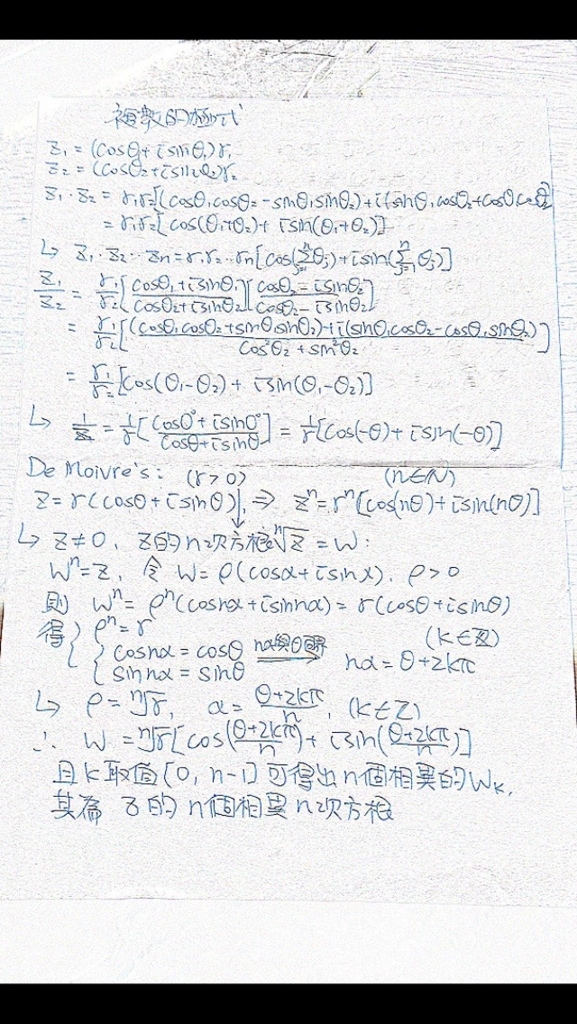 複數的極式
z₁ = (cosθ₁+isinθ₁)r₁
z₂ = (cosθ₂+isinθ₂)r₂
z₁·z₂ = r₁r₂[(cosθ₁cosθ₂-sinθ₁sinθ₂)+i(sinθ₁cosθ₂+cosθ₁cosθ₂)]
= r₁r₂[cos(θ₁+θ₂)+isin(θ₁+θ₂)]
↳ z₁·z₂…zn=r₁r₂…rn[cos(∑ⁿⱼ₌₁θj)+isin(∑ⁿⱼ₌₁θj)]
z₁/z₂ = r₁/r₂[(cosθ₁+isinθ₁)/(cosθ₂+isinθ₂)][(cosθ₂-isinθ₂)/(cosθ₂-isinθ₂)]
= r₁/r₂[((cosθ₁cosθ₂+sinθ₁sinθ₂)+i(sinθ₁cosθ₂-cosθ₁sinθ₂))/(cos²θ₂+sin²θ₂)]
= r₁/r₂[cos(θ₁-θ₂)+isin(θ₁-θ₂)]
↳ 1/z = 1/r[(cos0°+isin0°)/(cosθ+isinθ)] = 1/r[cos(-θ)+isin(-θ)]
De Moivre's: (r>0) (n∈N)
z=r(cosθ+isinθ) ⇒ zⁿ=rⁿ[cos(nθ)+isin(nθ)]
↳ z≠0, z的n次方根ⁿ√z=w:
wⁿ=z, 令 w=ρ(cosα+isinα). ρ>0
則 wⁿ=ρⁿ(cosnα+isinnα)=r(cosθ+isinθ)
得 { ρⁿ=r
{ cosnα=cosθ nα與θ同界 (k∈Z)
sinnα=sinθ → nα=θ+2kπ
↳ ρ=ⁿ√r, α=(θ+2kπ)/n, (k∈Z)
∴ w=ⁿ√r[cos((θ+2kπ)/n)+isin((θ+2kπ)/n)]
且k取值[0, n-1]可得出n個相異的wk,
其為 z的n個相異n次方根